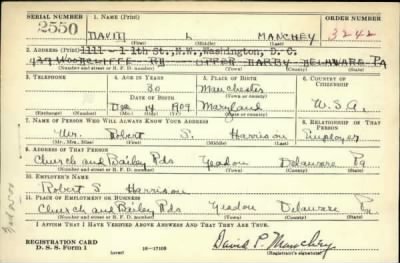 SERIAL NUMBER 1. NAME (Print) ORDER NUMBER
2550 DAVID L MANCHEY 3242
(First) (Middle) (Last)
2. ADDRESS (Print) 1111 - 1 1th St., N.W., Washington, D. C.
439 WOODCLIFFE RD UPPER DARBY DELAWARE PA
(Number and street or R. F. D. number) (Town) (County) (State)
3. TELEPHONE 4. AGE IN YEARS 5. PLACE OF BIRTH 6. COUNTRY OF CITIZENSHIP
30 Manchester
DATE OF BIRTH (Town or county)
Dec 14 1909 Maryland U.S.A.
(Exchange) (No.) (Mo.) (Day) (Yr.) (State or country)
7. NAME OF PERSON WHO WILL ALWAYS KNOW YOUR ADDRESS 8. RELATIONSHIP OF THAT PERSON
Mr. Robert S. Harrison Employer
(Mr., Mrs., Miss) (First) (Middle) (Last)
9. ADDRESS OF THAT PERSON
Church and Bailey Rds Yeadon Delaware Pa
(Number and street or R. F. D. number) (Town) (County) (State)
10. EMPLOYER'S NAME
Robert S Harrison
11. PLACE OF EMPLOYMENT OR BUSINESS
Church and Bailey Rds Yeadon Delaware Pa
(Number and street or R. F. D. number) (Town) (County) (State)
I AFFIRM THAT I HAVE VERIFIED ABOVE ANSWERS AND THAT THEY ARE TRUE.
REGISTRATION CARD
D. S. S. Form 1 (over) 16-17105 David P. Manchey
(Registrant's signature)